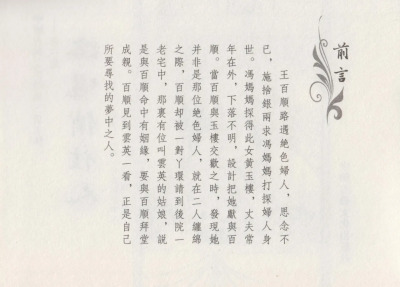 前言
王百順路遇絕色婦人，思念不
已，施捨銀兩求馮媽媽打探婦人身
世。馮媽媽探得此女黃玉樓，丈夫常
年在外，下落不明，設計把她獻與百
順。當百順與玉樓交歡之時，發現她
並非是那位絕色婦人，就在二人纏綿
之際，百順却被一對丫環請到後院一
老宅中，那裏有位叫雲英的姑娘，説
是與百順命中有姻緣，要與百順拜堂
成親。百順見到雲英一看，正是自己
所要尋找的夢中之人。